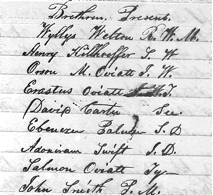 Brethren Present
Wyllys Welton R. W. M.
Henry Kilhoffer S. W
Orson M. Oviatt J. W.
Erastus Oviatt
David Carter Sec.
Ebenezer Palmer S. D
Adoniram Swift J. D.
Salmon Oviatt Ty
John Smith P. M.